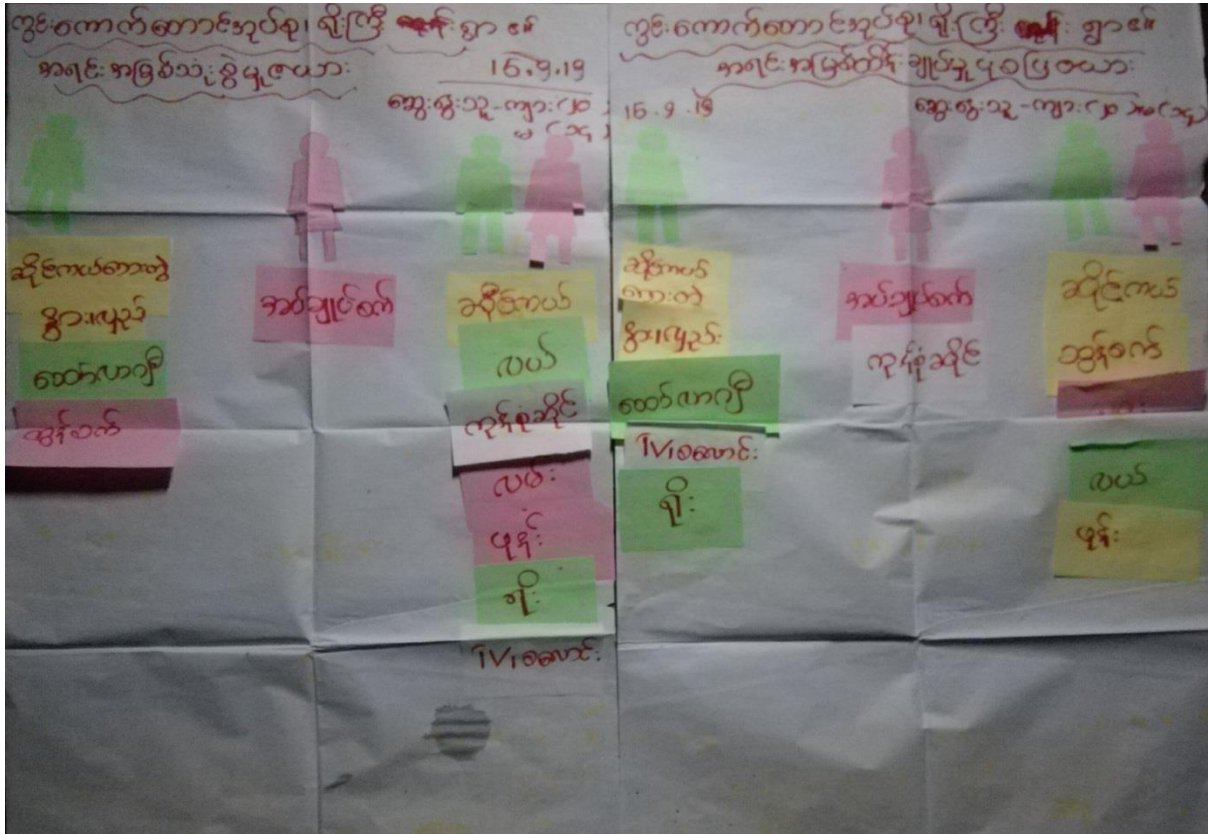 ကွင်းကောက်တောင်အုပ်စု၊ ရိုးကြီး ရွာ ၏
အရင်းအမြစ်သုံးစွဲမှုဇယား
16.9.19
ဆွေးနွေးသူ - ကျား (၂၀)
မ (၁၄)
ဆိုင်ကယ်ထော်တွဲ
နွားလှည်း
ထော်လာဂျီ
ထွန်စက်
အပ်ချုပ်စက်
ဆိုင်ကယ်
လယ်
ကုန်စုံဆိုင်
လမ်း
ဖုန်း
ရိုး
TV၊ စလောင်း
ကွင်းကောက်တောင်အုပ်စု၊ ရိုးကြီး ရွာ ၏
အရင်းအမြစ်ထိန်းချုပ်မှုပုံပြဇယား
16.9.19
ဆွေးနွေးသူ - ကျား (၂၀) မ (၁၄)
ဆိုင်ကယ်
နွားလှည်း
ထော်လာဂျီ
TV၊ စလောင်း
ရိုး
အပ်ချုပ်စက်
ကုန်စုံဆိုင်
ဆိုင်ကယ်
ထွန်စက်
လယ်
ဖုန်း